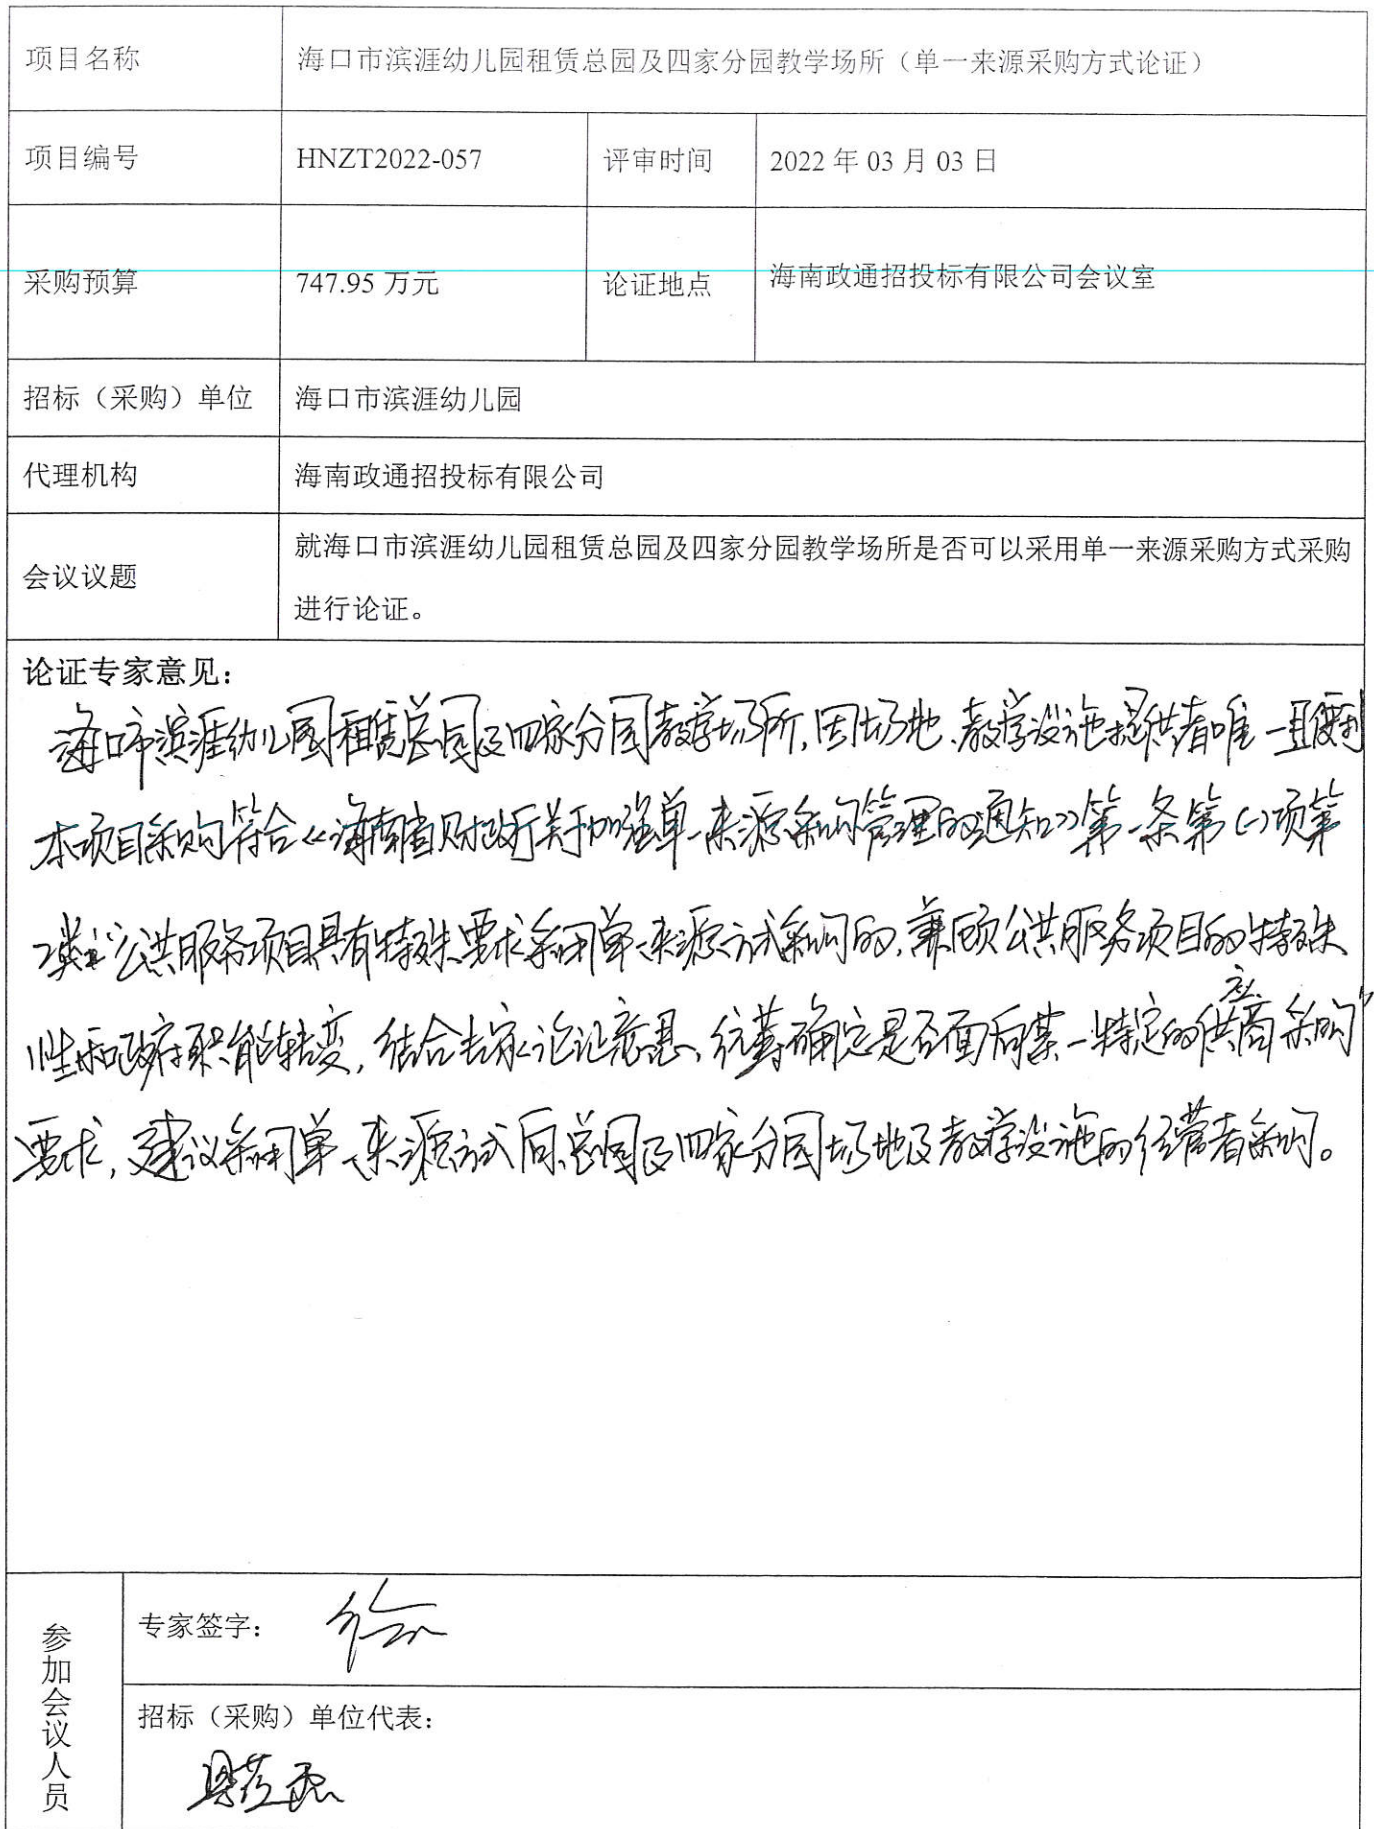 项目名称 海口市滨涯幼儿园租赁总园及四家分园教学场所（单一来源采购方式论证）
项目编号 HNZT2022-057 评审时间 2022 年 03 月 03 日
采购预算 747.95 万元 论证地点 海南政通招投标有限公司会议室
招标（采购）单位 海口市滨涯幼儿园
代理机构 海南政通招投标有限公司
会议议题 就海口市滨涯幼儿园租赁总园及四家分园教学场所是否可以采用单一来源采购方式采购
进行论证。
论证专家意见：
海口市滨涯幼儿园租赁总园及四家分园教学场所，因场地、教学设施提供者唯一且便利
本项目采购符合《海南省财政厅关于加强单一来源采购管理的通知》第一条第(一)项第
2类"公共服务项目具有特殊要求采用单一来源方式采购的，兼顾公共服务项目的特殊
性和政府职能转变，结合专家论证意见、统筹确定是否面向某一特定的供应商采购"
要求，建议采用单一来源方式向总园及四家分园场地及教学设施的经营者采购。
参加会议人员
专家签字：
招标（采购）单位代表：